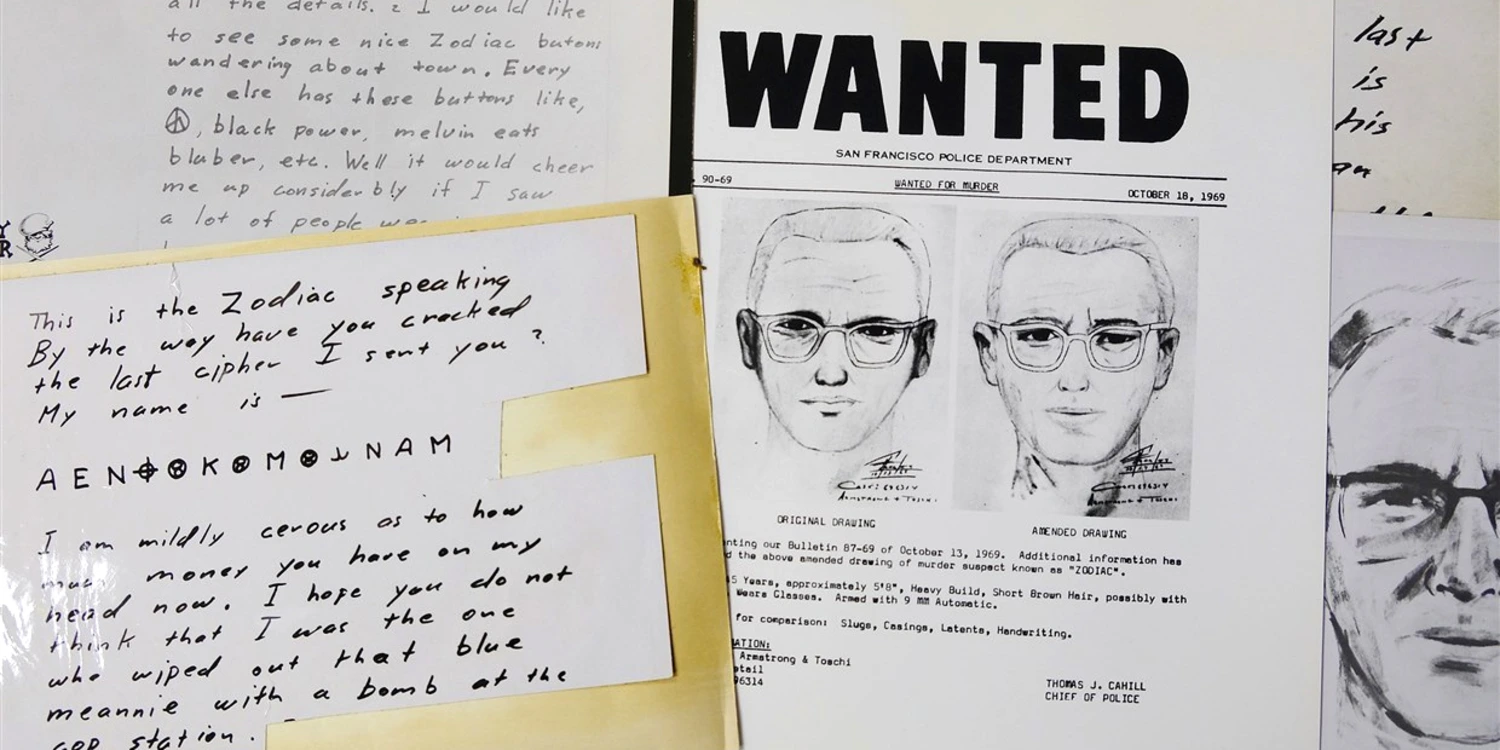 all the details. 2 I would like
to see some nice Zodiac butons
wandering about town. Every
one else has these buttons like,
☮, black power, melvin eats
bluber, etc. Well it would cheer
me up considerbly if I saw
a lot of people
Y
R
This is the Zodiac speaking
By the way have you cracked
the last cipher I sent you ?
My name is —
A E N ⌖ ⊗ K ⊗ M ⊗ ⅄ N A M
I am mildly cerous as to how
much money you have on my
head now. I hope you do not
think that I was the one
who wiped out that blue
meannie with a bomb at the
cop station.
WANTED
SAN FRANCISCO POLICE DEPARTMENT
90-69 WANTED FOR MURDER OCTOBER 18, 1969
ORIGINAL DRAWING AMENDED DRAWING
nting our Bulletin 87-69 of October 13, 1969. Additional information has
d the above amended drawing of murder suspect known as "ZODIAC".
5 Years, approximately 5'8", Heavy Build, Short Brown Hair, possibly with
Wears Glasses. Armed with 9 MM Automatic.
for comparison: Slugs, Casings, Latents, Handwriting.
ATION:
Armstrong & Toschi
etail
96314
THOMAS J. CAHILL
CHIEF OF POLICE
last
is
his
an